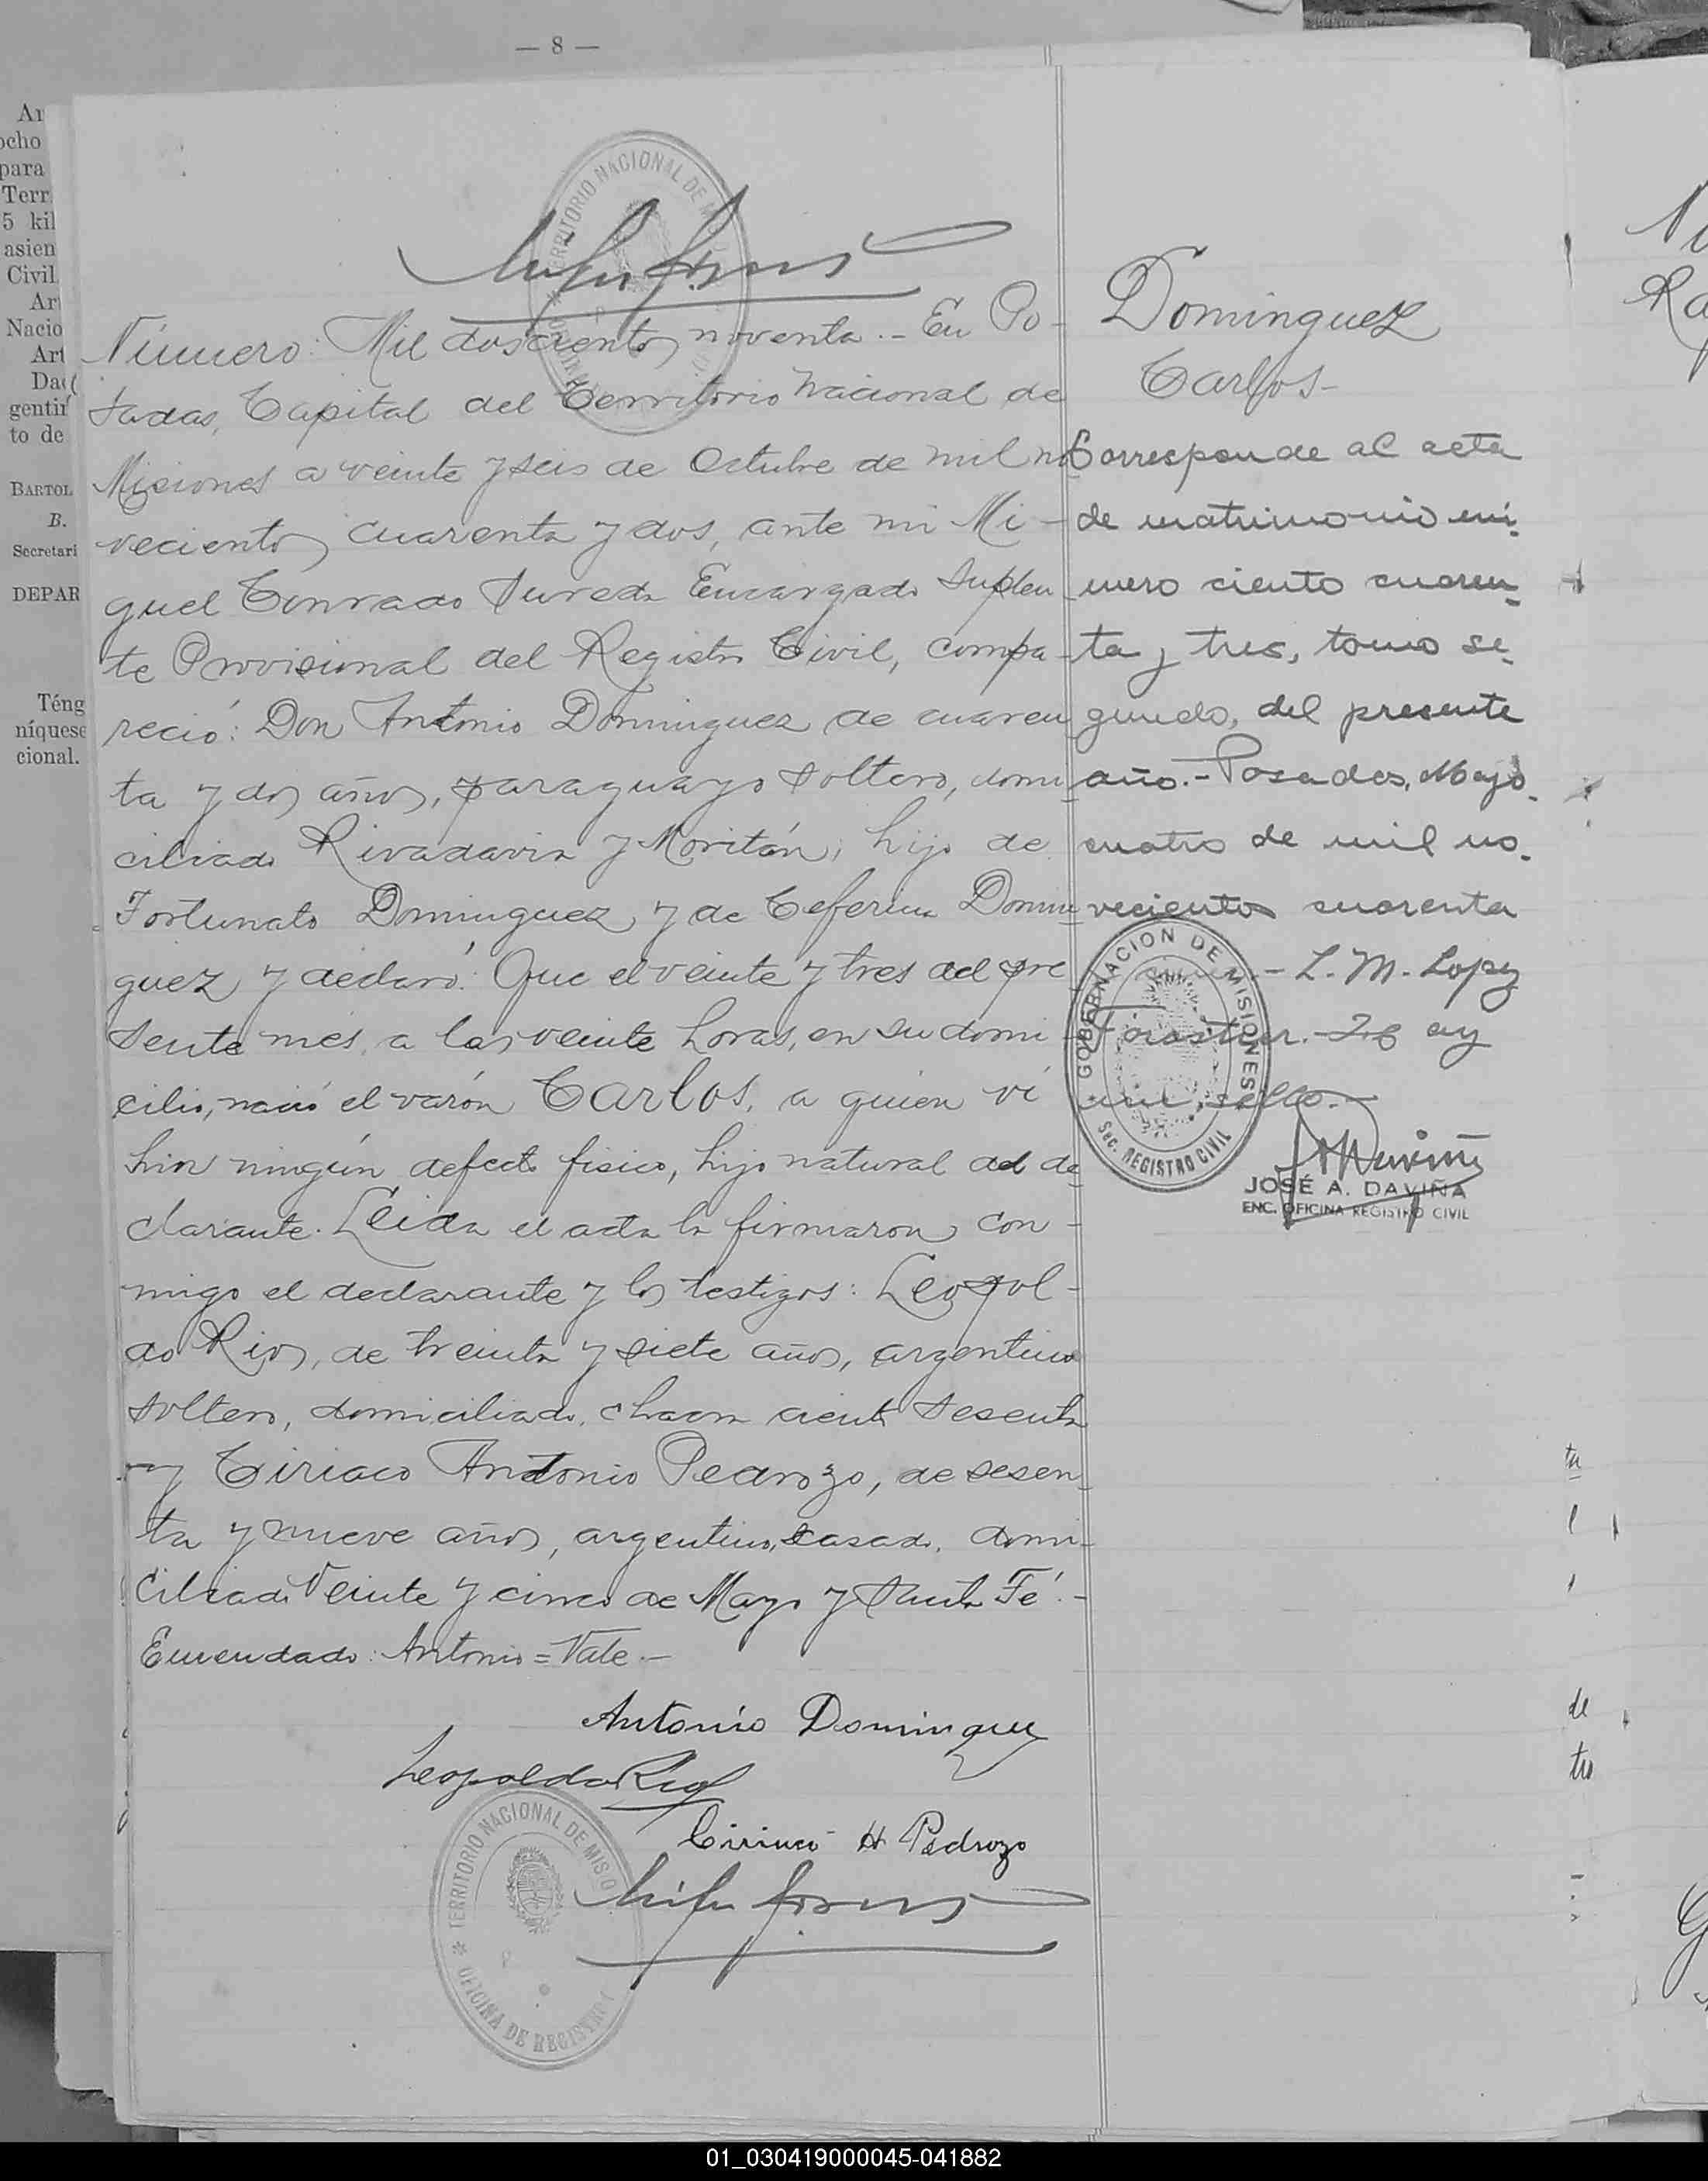 — 8 —
Ar
ocho
para
Terr
5 kil
asien
Civil.
Ar
Nacio
Art
Da
gentin
to de
BARTOL
B.
Secretari
DEPAR
Téng
níquese
cional.
TERRITORIO NACIONAL DE
Número: Mil doscientos noventa.- En Po-
sadas, Capital del Territorio Nacional de
Misiones a veinte y seis de Octubre de mil no
vecientos cuarenta y dos, ante mi Mi-
guel Conrado Sureda Encargado Suplen
te Provisional del Registro Civil, compa-
reció: Don Antonio Dominguez de cuaren
ta y dos años, paraguayo soltero, domi
ciliado Rivadavia y Moritán, hijo de
Fortunato Dominguez y de Ceferina Domin
guez y declaró: Que el veinte y tres del pre
sente mes, a las veinte horas, en su domi-
cilio, nació el varón Carlos, a quien ví
sin ningún defecto fisico, hijo natural del de
clarante. Leida el acta la firmaron con-
migo el declarante y los testigos: Leopol-
do Rios, de treinta y siete años, argentino
soltero, domiciliado chacra ciento sesenta
y Ciriaco Antonio Pedrozo, de sesen
ta y nueve años, argentino, casado, domi-
ciliado Veinte y cinco de Mayo y Santa Fé.-
Enmendado: Antonio = Vale.-
Antonio Dominguez
Leopoldo Rios
Ciriaco A Pedrozo
TERRITORIO NACIONAL DE MISIO
OFICINA DE REGISTRO
Dominguez
Carlos-
Corresponde al acta
de matrimonio nú-
mero ciento cuaren-
ta y tres, tomo se-
gundo, del presente
año.- Posadas, Mayo
cuatro de mil no-
vecientos cuarenta
- L. M. Lopez
Forastier. - Hay
un sello.-
GOBERNACION DE MISIONES
Sec. REGISTRO CIVIL
JOSÉ A. DAVIÑA
ENC. OFICINA REGISTRO CIVIL
ta
de
tro
01_030419000045-041882